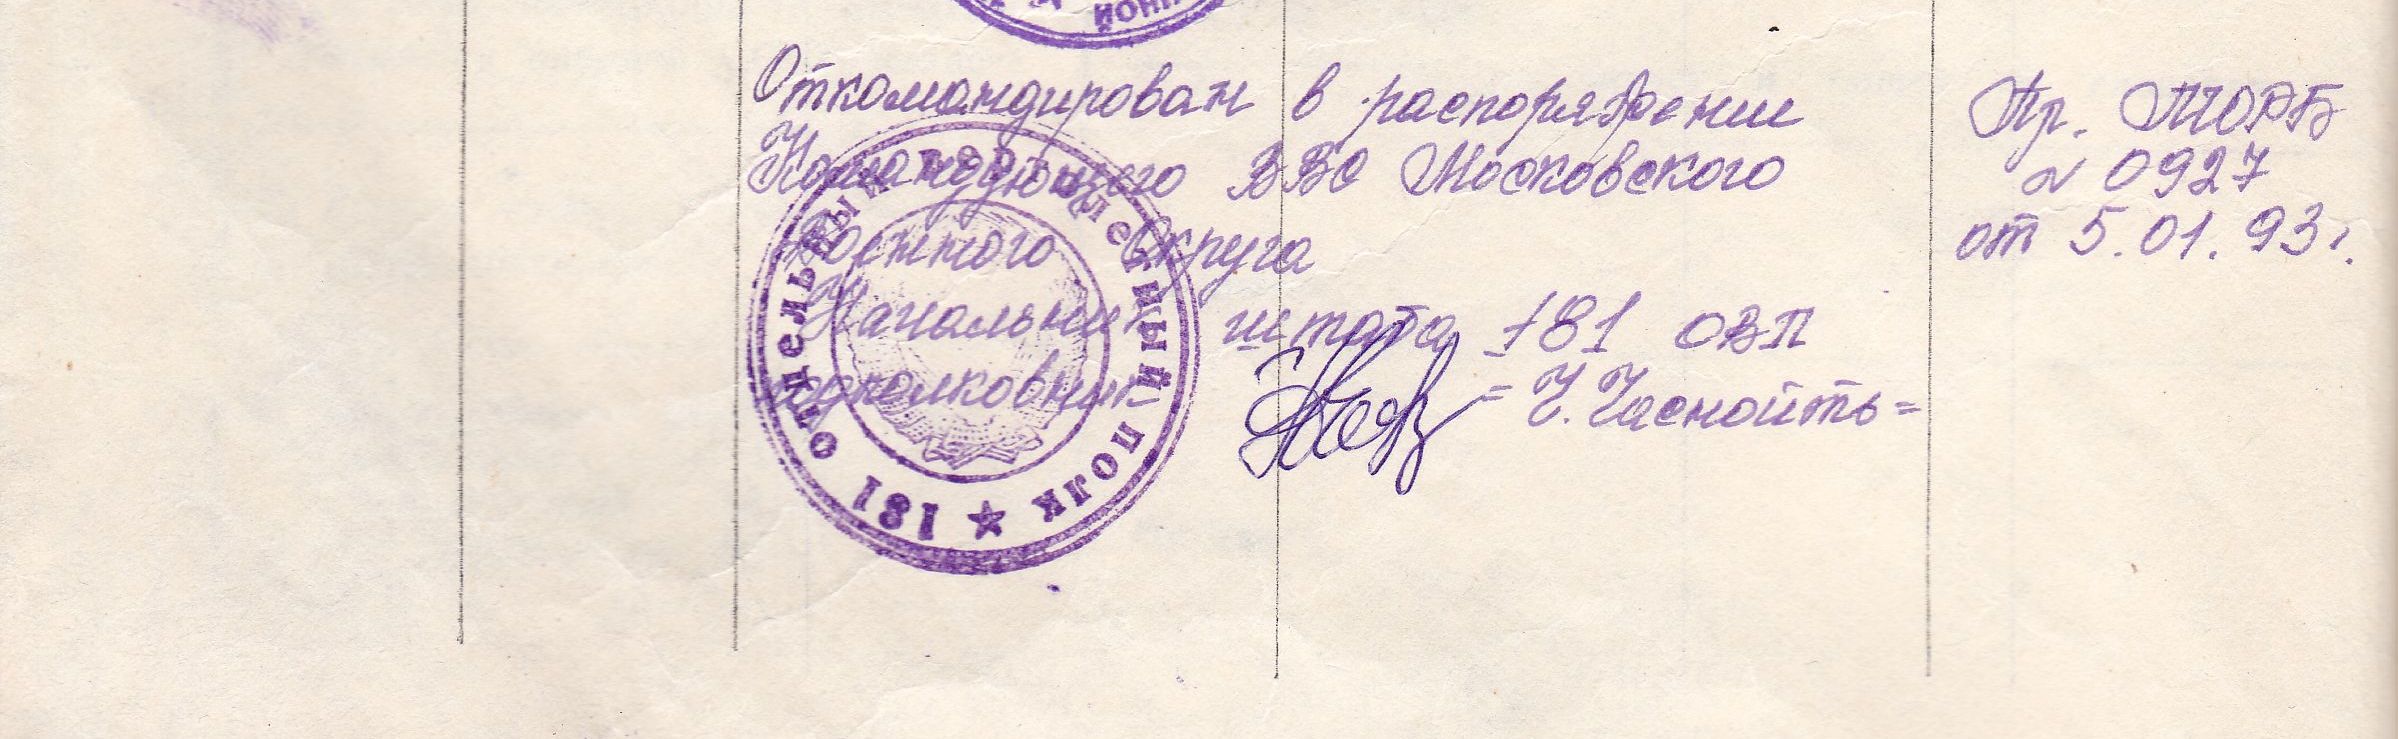 нной
Откомандирован в распоряжение Пр. МОРБ
Командующего ВВС Московского № 0927
Военного Округа от 5.01.93г.
Начальник штаба 181 ОВП
подполковник = Ч. Часнойть =
181 отдельный вертолетный полк